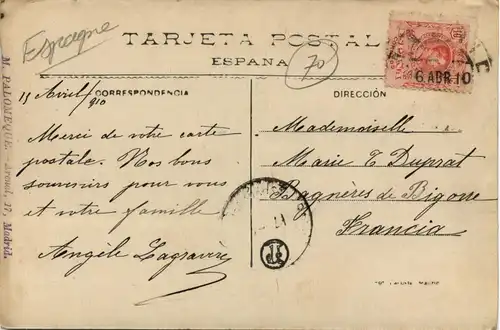 Espagne
TARJETA POSTAL
ESPAÑA
70
6 ABR 10
15 Avril/910
CORRESPONDENCIA
DIRECCIÓN
Merci de votre carte
postale. Nos bons
souvenirs pour vous
et votre famille
Angèle Lagravère
Mademoiselle
Marie T Duprat
Bagnères de Bigorre
Francia
M. PALOMEQUE.—Arenal, 17, Madrid.